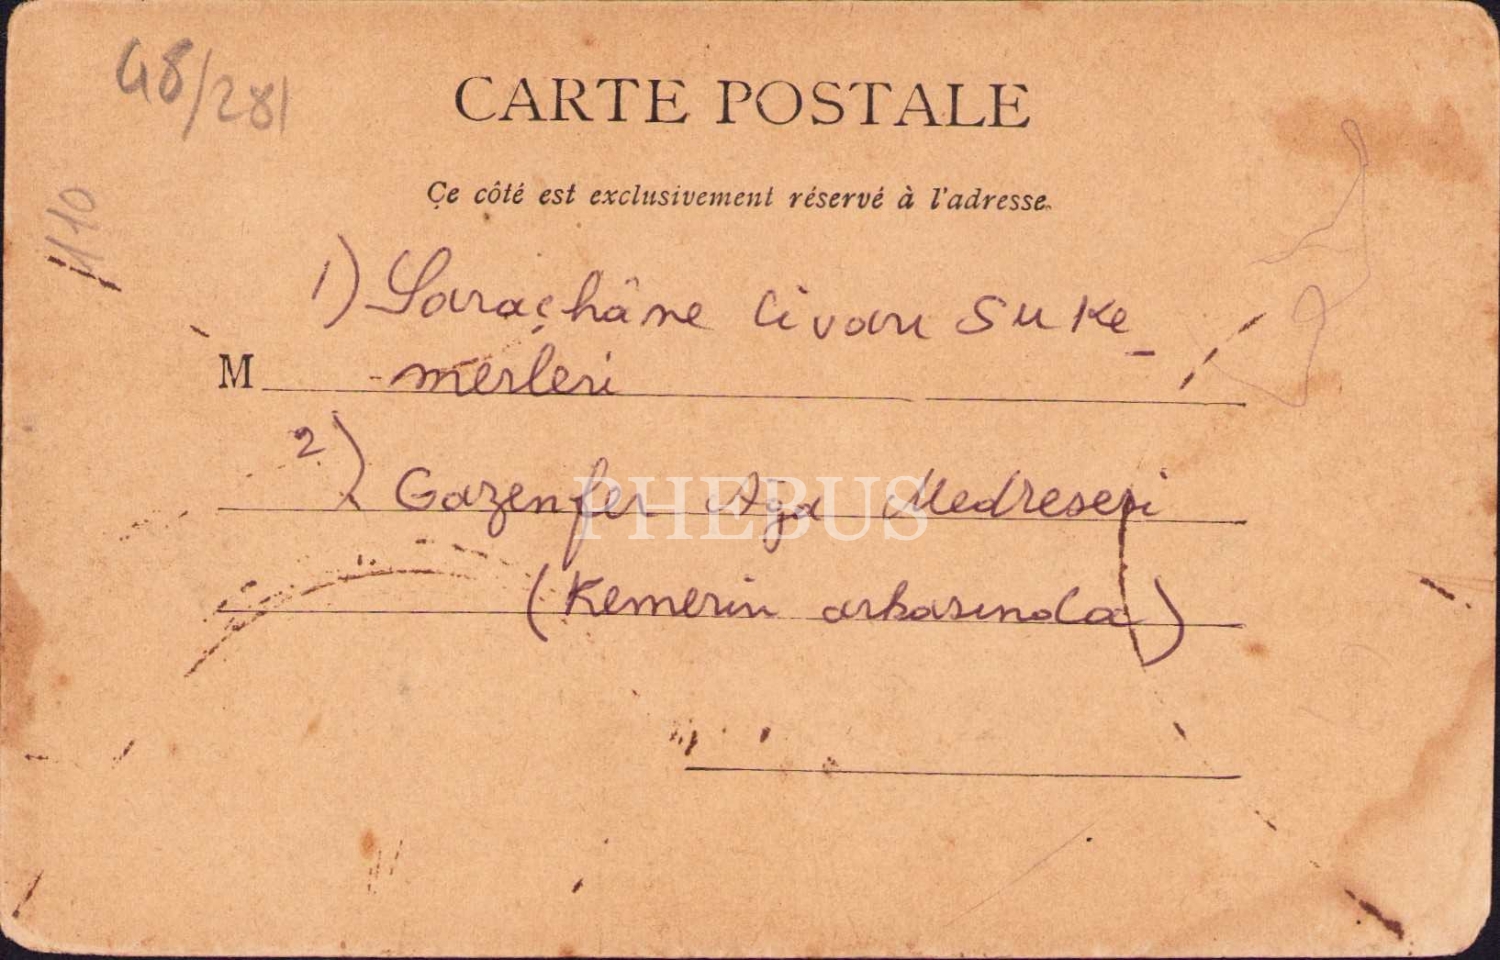 48/281
CARTE POSTALE
Ce côté est exclusivement réservé à l'adresse.
110
1) Saraçhâne Civarı Su Ke_
M -merleri
2) Gazenfer Ağa Medresesi
PHEBUS
(Kemerin arkasında)